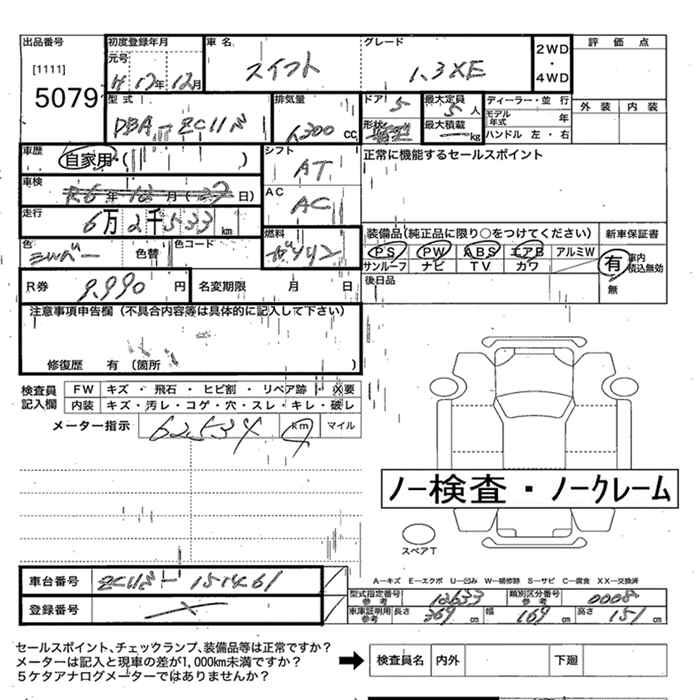 出品番号
[1111]
5079
初度登録年月
元号
H 17年 12月
車名
スイフト
グレード
1.3XE
2WD
・
4WD
評価点
外装 内装
型式
DBA-ZC11S
排気量
1,300 CC
ドア 5
形状
最大定員
5 人
最大積載
kg
ディーラー・並行
モデル年式 年
ハンドル 左・右
車歴
自家用 ( )
シフト
AT
正常に機能するセールスポイント
車検
R6年 12月 (27日)
AC
AC
走行
6万2千533 km
装備品(純正品に限り○をつけてください)
新車保証書
色
シルバー
色替
色コード
燃料
ガソリン
PS PW ABS エアB アルミW
サンルーフ ナビ TV カワ
有 車内積込無効
無
後日品
R券 9,990 円
名変期限 月 日
注意事項申告欄(不具合内容等は具体的に記入して下さい)
修復歴 有 (箇所 )
検査員記入欄
FW キズ・飛石・ヒビ割・リペア跡・X要
内装 キズ・汚レ・コゲ・穴・スレ・キレ・破レ
メーター指示 62534 km マイル
ノー検査・ノークレーム
スペアT
A―キズ E―エクボ U―凹み W―補修跡 S―サビ C―腐食 XX―交換済
車台番号 ZC11S-151461
登録番号
型式指定番号 参考 12633
類別区分番号 参考 0008
車庫証明用 参考 長さ 369 cm 幅 169 cm 高さ 151 cm
セールスポイント、チェックランプ、装備品等は正常ですか?
メーターは記入と現車の差が1,000km未満ですか?
5ケタアナログメーターではありませんか?
検査員名 内外 下廻